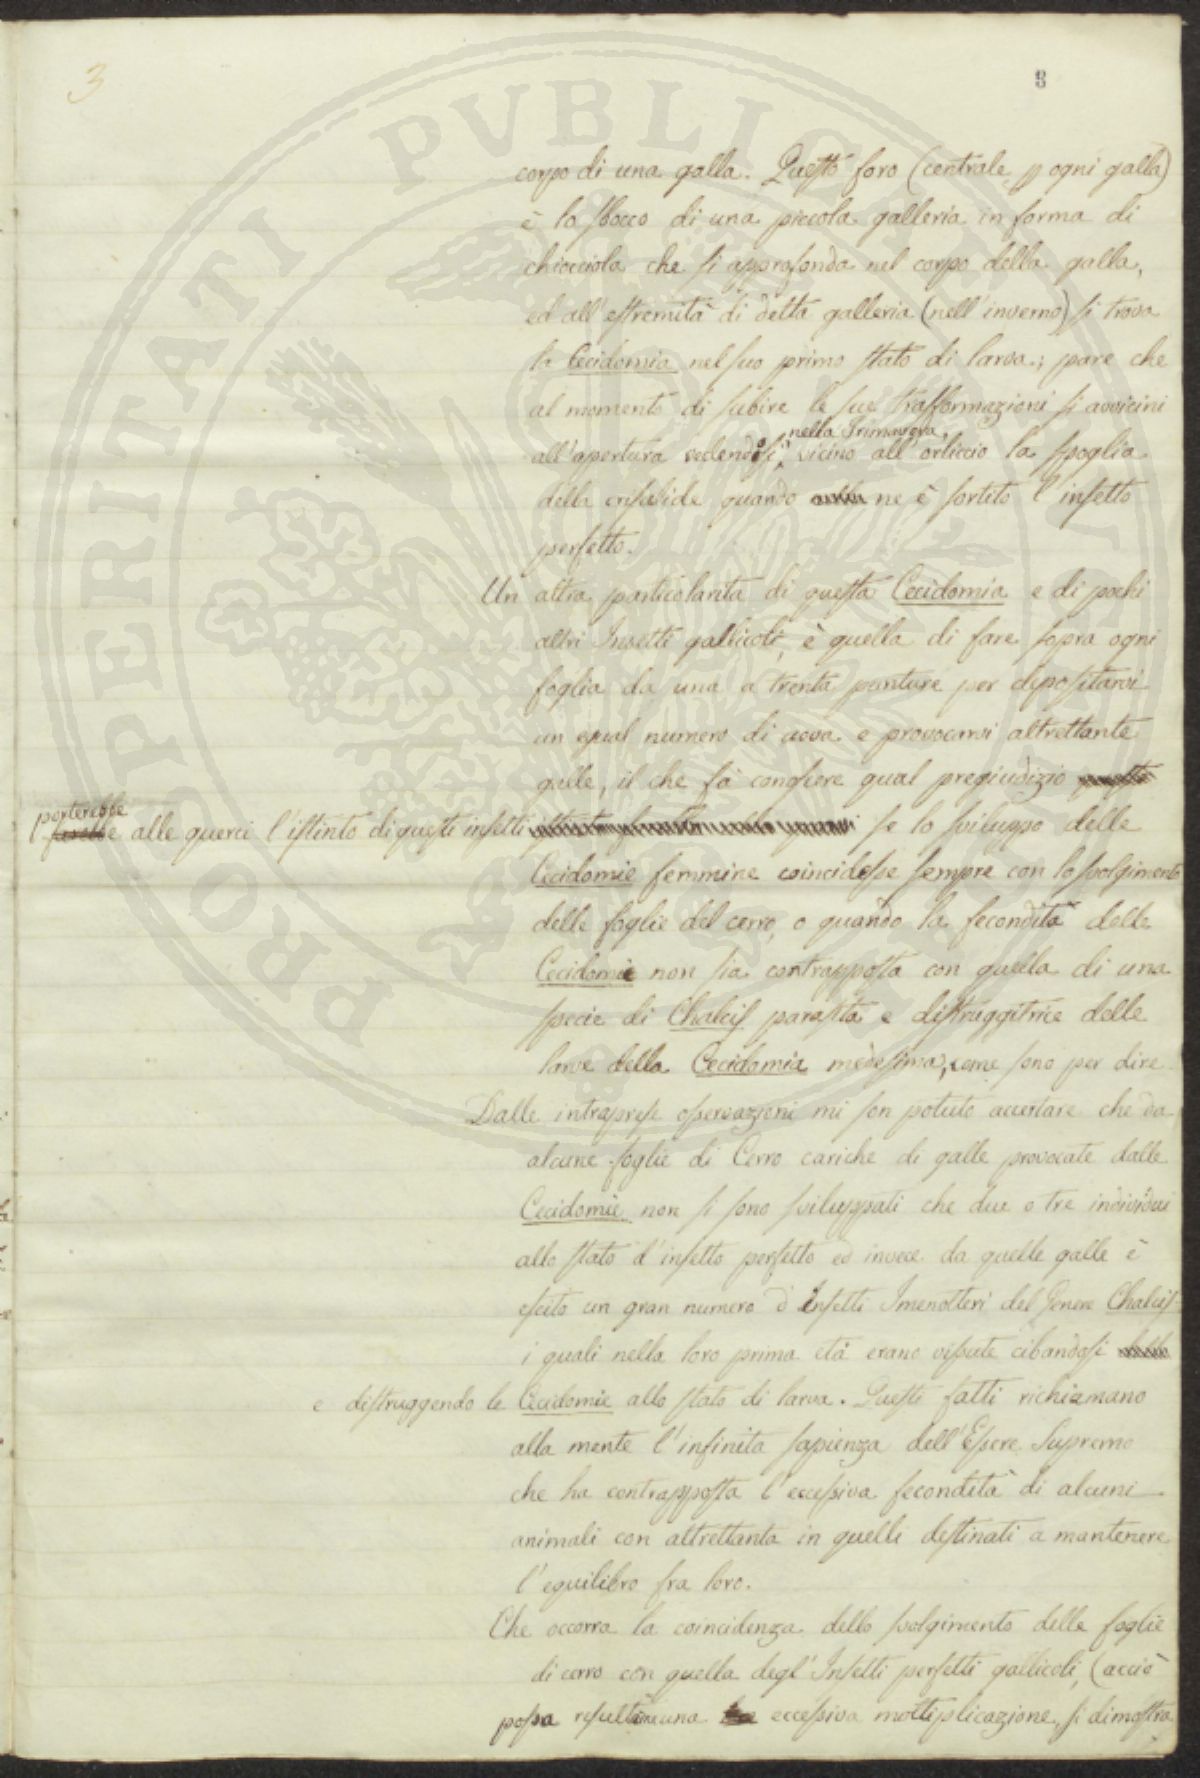 3
8
corpo di una galla. Questo foro (centrale p ogni galla)
è lo sbocco di una piccola galleria in forma di
chiocciola che si approfonda nel corpo della galla,
ed all'estremità di detta galleria (nell'inverno) si trova
la Cecidomia nel suo primo stato di larva; pare che
al momento di subire le sue trasformazioni si avvicini
nella Primavera,
all'apertura vedendosi vicino all'orliccio la spoglia
della crisalide quando ne è sortito l'insetto
perfetto.
Un altra particolarità di questa Cecidomia e di pochi
altri Insetti gallicoli, è quella di fare sopra ogni
foglia da una a trenta punture per depositarvi
un egual numero di uova e provocarvi altrettante
galle, il che fà conoscere qual pregiudizio
porterebbe
alle querci l'istinto di questi insetti se lo sviluppo delle
Cecidomie femmine coincidesse sempre con lo svolgimento
delle foglie del cerro, o quando la fecondità delle
Cecidomie non sia contrapposta con quella di una
specie di Chalcis parasita e distruggitrice delle
larve della Cecidomia medesima, come sono per dire
Dalle intraprese osservazioni mi son potuto accertare che da
alcune foglie di Cerro cariche di galle provocate dalle
Cecidomie non si sono sviluppati che due o tre individui
allo stato d'insetto perfetto ed invece da quelle galle è
escito un gran numero d'Insetti Imenotteri del Genere Chalcis
i quali nella loro prima età erano vissute cibandosi
e distruggendo le Cecidomie allo stato di larva. Questi fatti richiamano
alla mente l'infinita sapienza dell'Essere Supremo
che ha contrapposta l'eccessiva fecondità di alcuni
animali con altrettanta in quelli destinati a mantenere
l'equilibro fra loro.
Che occorra la coincidenza dello svolgimento delle foglie
di cerro con quella degl'Insetti perfetti gallicoli, (acciò
possa resultarne una eccessiva moltiplicazione, si dimostra
PROSPERITATI PUBLICAE